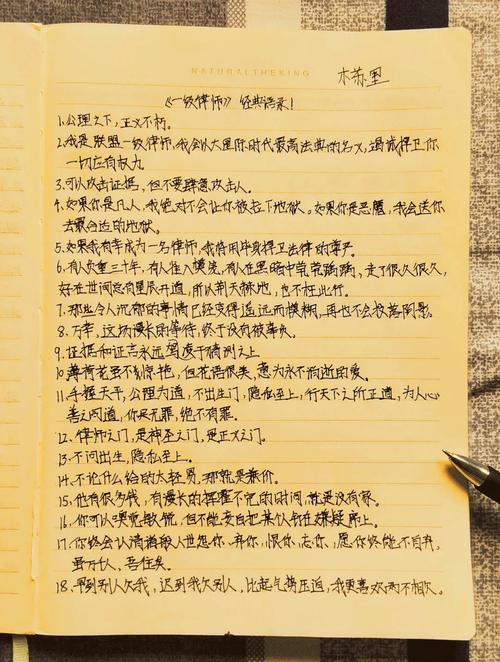 NATURALTHEKING
木苏里
《一级律师》 经典语录!
1.公理之下,正义不朽。
2.我是联盟一级律师,我会以大星际时代最高法典的名义,遇诚捍卫你
一切应有权力
3.可以攻击证据,但不要肆意攻击人。
4.如果你是凡人,我绝对不会让你被拉下地狱。如果你是恶魔,我会送你
去最合适的地狱。
5.如果我有幸成为一名律师,我将用毕身捍卫法律的尊严。
6.有人负重三十年,有人往入横流,有人在黑暗中茕茕踽踽,走了很久很久,
好在世间总有星辰开道,所以荆天棘地,也不枉此行。
7.那些令人沉郁的事情已经变得遥远而模糊,再也不会投落倒影。
8.万幸,这场漫长的等待,终于没有被辜负。
9.证据和证言永远驾凌于猜测之上
10.薄荷花虽不别惊艳,但花语很美,意为永不消逝的爱。
11.手握天平,公理为道,不出生门,隐私至上,行天下之所正道,为人心
善之同道,你归无罪,绝不有罪。
12.律师之门,是神圣之门,是正义之门。
13.不问出生,隐私至上。
14.不论什么给的太轻易,那就是廉价。
15.他有很多钱,有漫长的挥霍不完的时间,就是没有家。
16.你可以嗅觉敏锐,但不能妄自把某个人钉在嫌疑席上。
17.你终会认清着骇人世怨你、弃你、恨你、忘你,愿你终能不自弃,
虽万仞人,吾往矣。
18.早到别人欠我,迟到我欠别人,比起气势压迫,我更喜欢两不相欠。